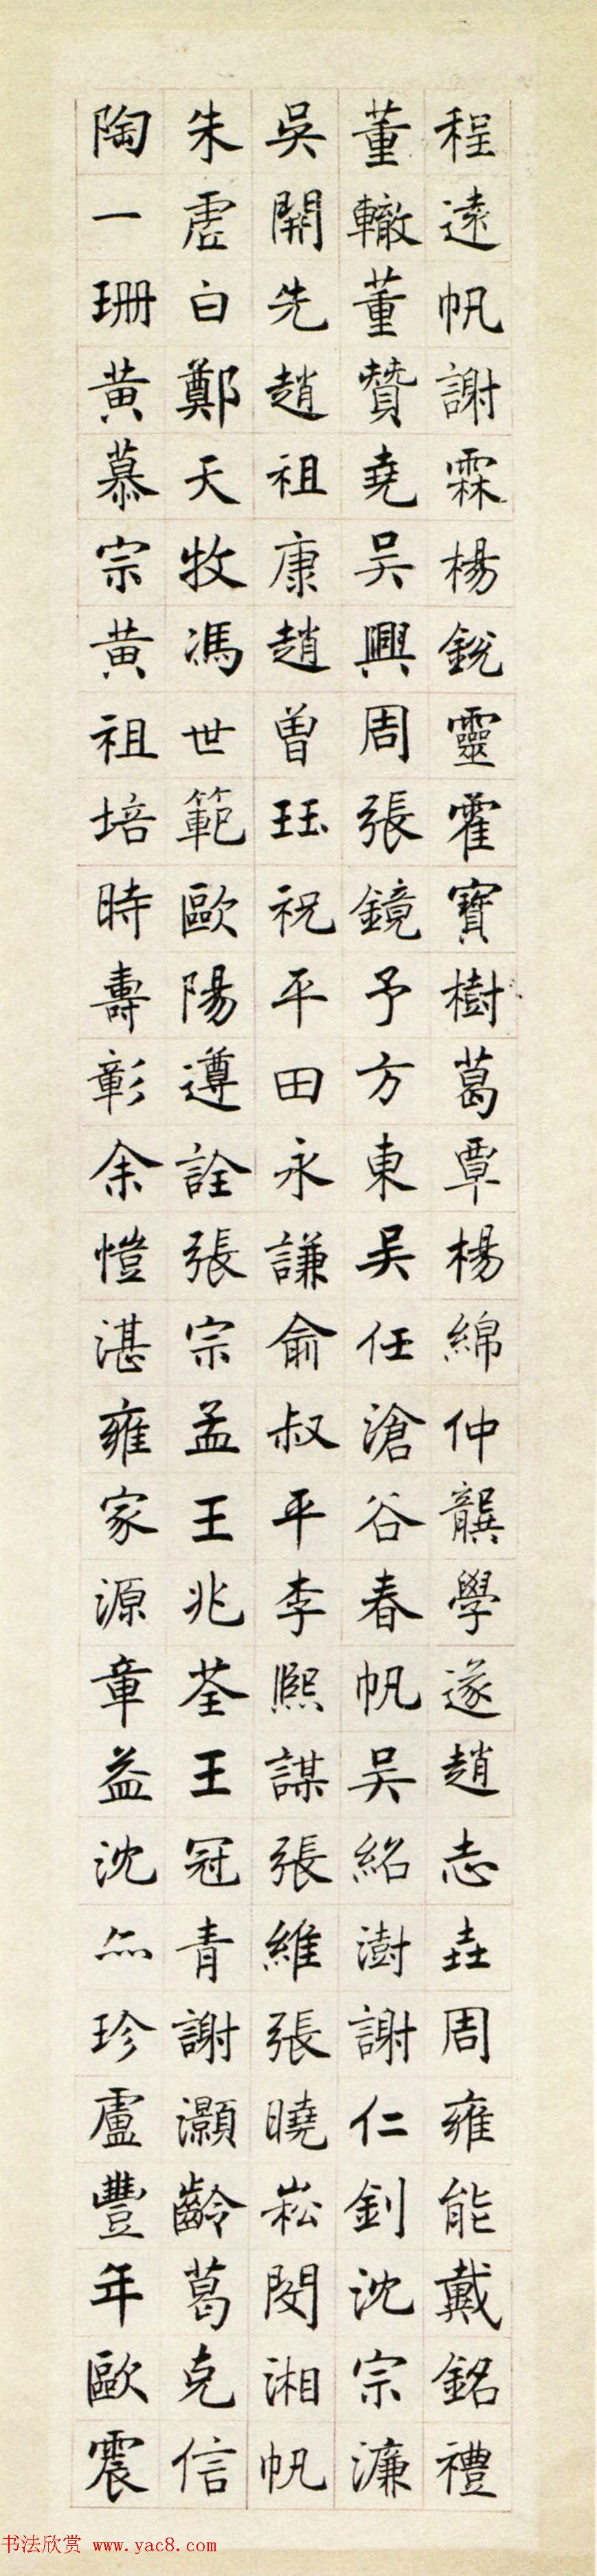 程遠帆謝霖楊銳靈霍寶樹葛覃楊綿仲龔學遂趙志垚周雍能戴銘禮
董轍董贊堯吳興周張鏡予方東吴任滄谷春帆吴紹澍謝仁釗沈宗濂
吳開先趙祖康趙曾珏祝平田永謙俞叔平李熙謀張維張曉崧閔湘帆
朱虛白鄭天牧馮世範歐陽遵詮張宗孟王兆荃王冠青謝灝齡葛克信
陶一珊黃慕宗黃祖培時壽彰余愷湛雍家源章益沈珍盧豐年歐震
书法欣赏 www.yac8.com